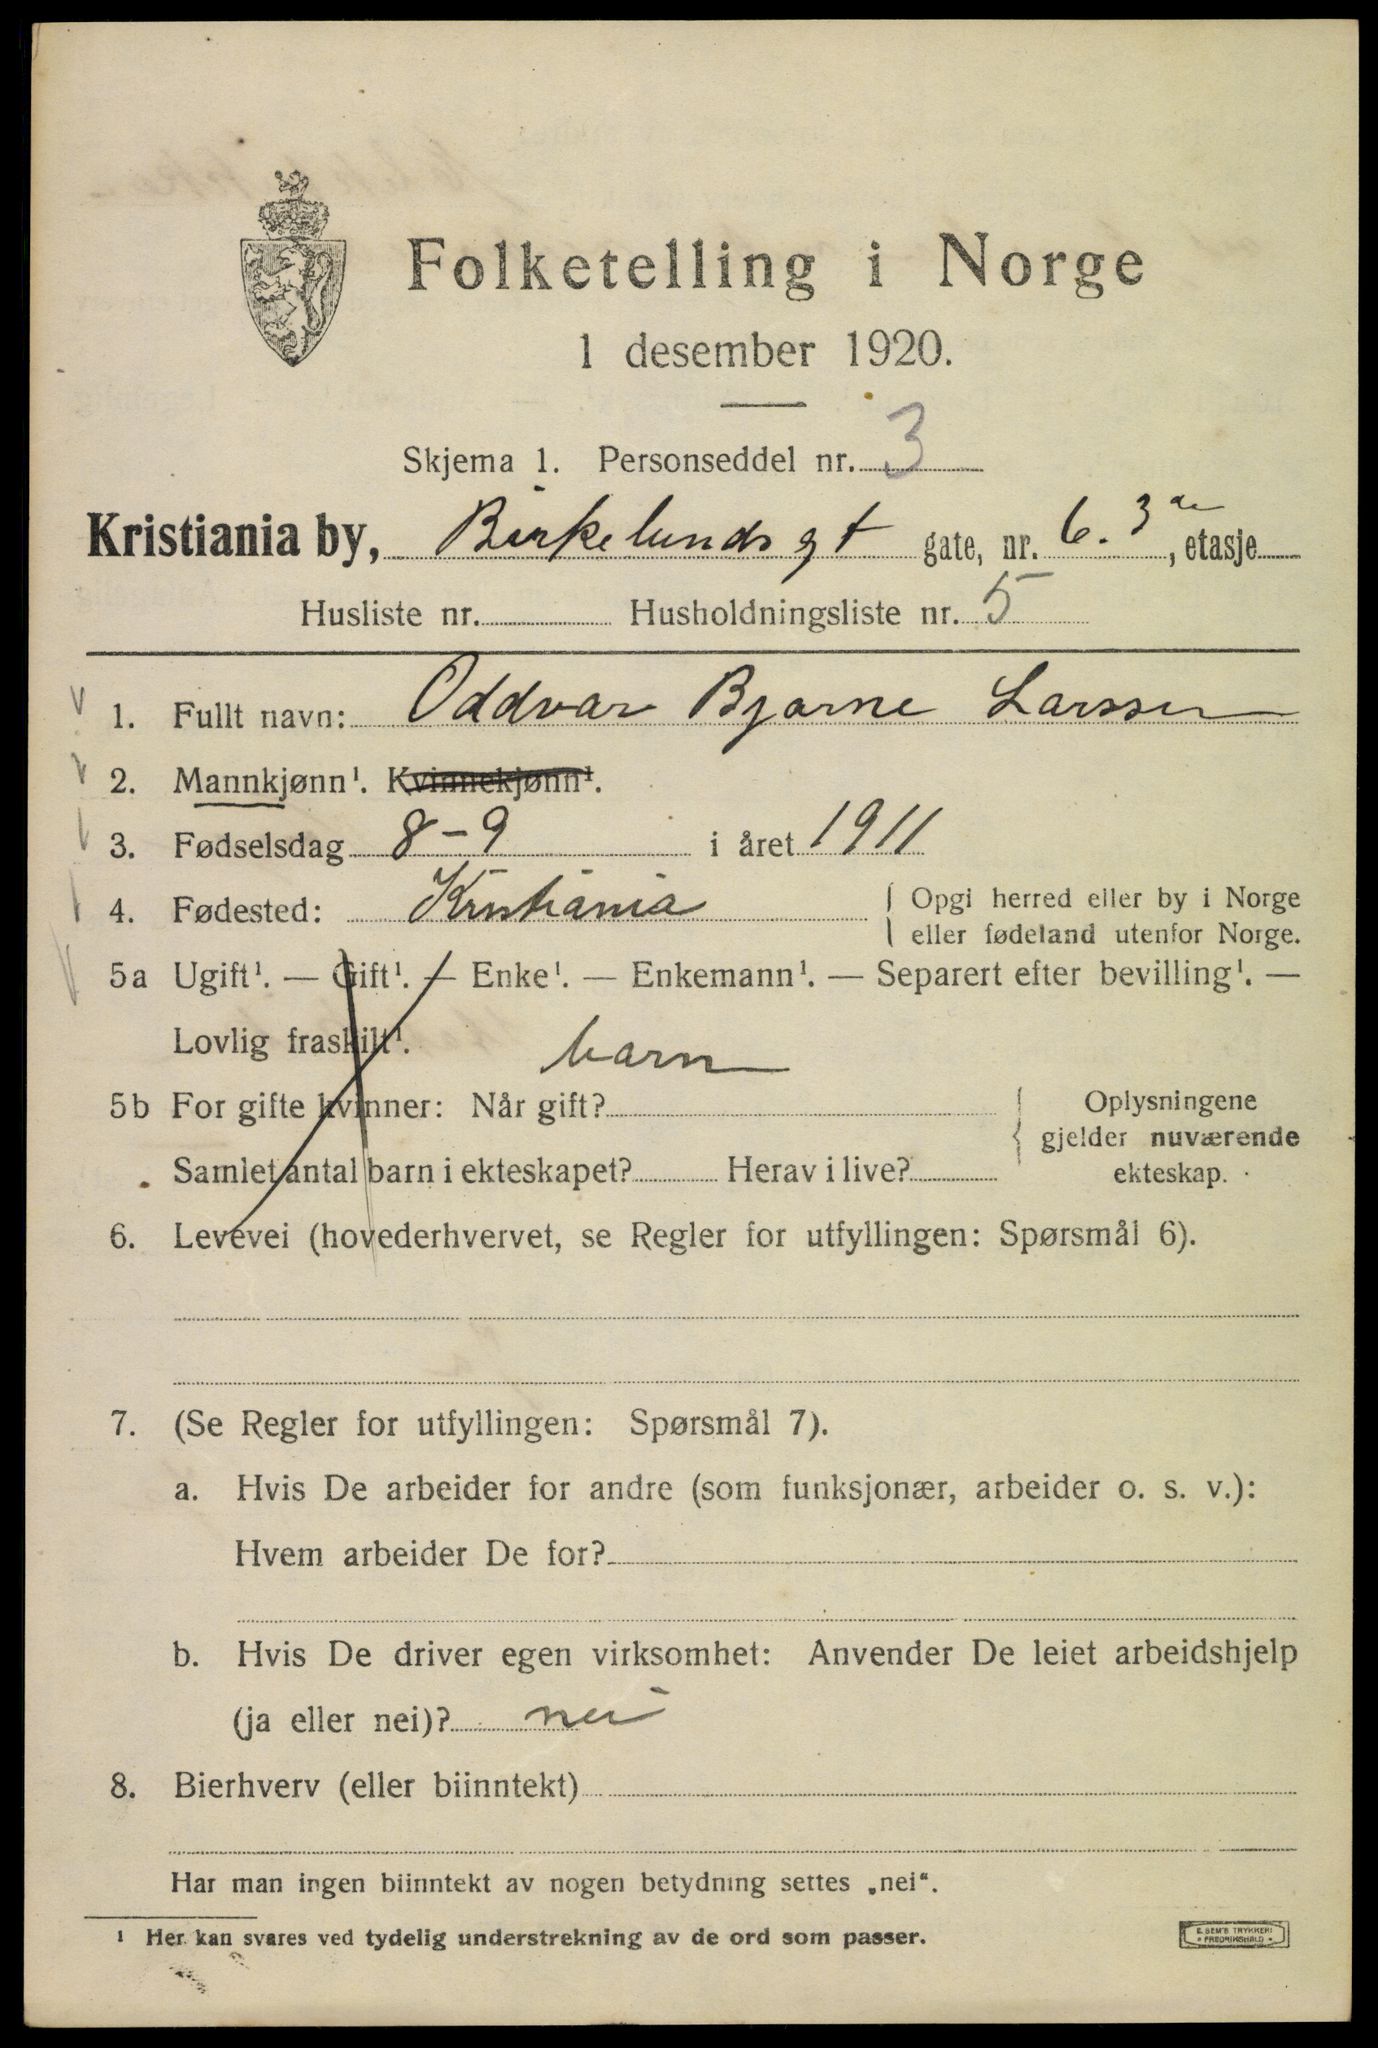 Folketelling i Norge
1 desember 1920.
Skjema 1. Personseddel nr. 3
Kristiania by, Birkelunds gt gate, nr. 6. 3de, etasje
Husliste nr. Husholdningsliste nr. 5
1. Fullt navn: Oddvar Bjarne Larssen
2. Mannkjønn¹. Kvinnekjønn¹.
3. Fødselsdag 8-9 i året 1911
4. Fødested: Kristiania { Opgi herred eller by i Norge
eller fødeland utenfor Norge.
5a Ugift¹. — Gift¹. — Enke¹. — Enkemann¹. — Separert efter bevilling¹. —
Lovlig fraskilt¹. barn
5b For gifte kvinner: Når gift? { Oplysningene
gjelder nuværende
Samlet antal barn i ekteskapet? Herav i live? ekteskap.
6. Levevei (hovederhvervet, se Regler for utfyllingen: Spørsmål 6).
7. (Se Regler for utfyllingen: Spørsmål 7).
a. Hvis De arbeider for andre (som funksjonær, arbeider o. s. v.):
Hvem arbeider De for?
b. Hvis De driver egen virksomhet: Anvender De leiet arbeidshjelp
(ja eller nei)? nei
8. Bierhverv (eller biinntekt)
Har man ingen biinntekt av nogen betydning settes „nei“.
¹ Her kan svares ved tydelig understrekning av de ord som passer.
E. SEM'S TRYKKERI
* FREDRIKSHALD *